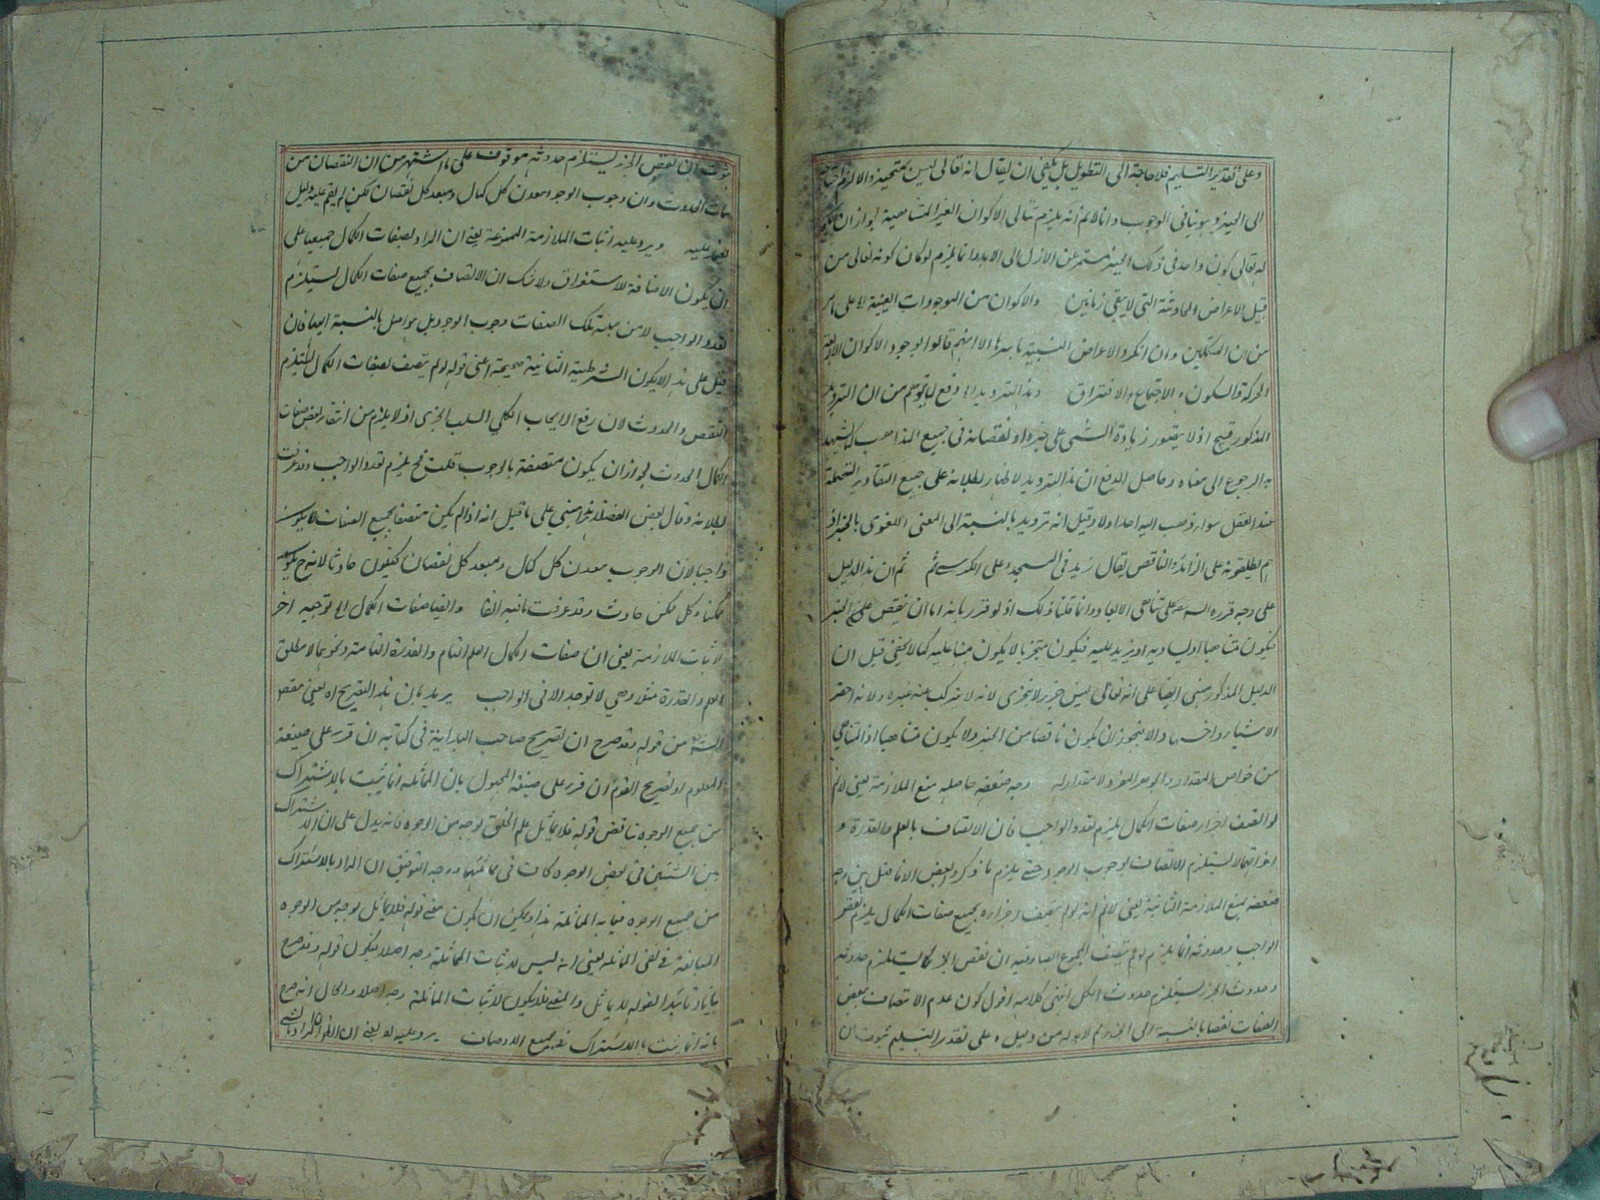 وعلى تقدير التسليم فلا حاجة الى التطويل بل يكفى ان يقال انه تعالى ليس بمتحيز والا لزم
الى الحيز وهو ينافى الوجوب وانا لا نم انه يلزم الاكوان الغير المتناهية لجواز ان يكون
له تعالى كون واحد فى ذلك الحيز مستمر من الازل الى الابد وانما يلزم لو كان كونه تعالى من
قبيل الاعراض الحادثة التى لا يبقى زمانين والاكوان من الموجودات العينية على ما مر
من ان المتكلمين وان انكروا الاعراض النسبية باسرها الا انهم قالوا بوجود الاكوان الاربعة
الحركة والسكون والاجتماع والافتراق هذا الترديد وقع لما يتوهم من ان الترديد
المذكور قبيح اذ لا يتصور زيادة الشىء على حيزه او نقصانه فى جميع المذاهب
الرجوع الى معناه وحاصل الدفع ان هذا الترديد لاظهار بطلانه على جميع التقادير المحتملة
عند العقل سواء ذهب اليه احد اولا وقيل انه ترديد بالنسبة الى المعنى اللغوى
يطلقونه على الزائد والناقص يقال زيد فى المسجد وعلى الكرسى ثم ان هذا الدليل
على وجه قرره على تناهى الابعاد وانما قلنا ذلك اذ لو قرر بانه اما ان ينقص عن الحيز
فيكون متناهيا او يساويه او يزيد عليه فيكون متجزيا لا يكون مبنيا عليه كما لا يخفى قيل ان
الدليل المذكور مبنى ايضا على انه تعالى ليس جزء لا يتجزى لانه لا يتركب عنه غيره ولانه احقر
الاشياء والا فيجوز ان يكون ناقصا من الحيز ولا يكون متناهيا اذ التناهى
من خواص المقدار والجوهر الفرد لا مقدار له وجه ضعفه حاصله منع الملازمة يعنى لا نم
لو اتصف اجزاؤه صفات الكمال يلزم تعدد الواجب فان الاتصاف بالعلم والقدرة و
لا يستلزم الاتصاف بوجوب الوجود حتى يلزم ما ذكره بعض الافاضل بين وجه
ضعفه بمنع الملازمة الثانية يعنى لا نم انه لو لم يتصف اجزاؤه بجميع صفات الكمال يلزم نقص
الواجب وحدوثه انما يلزم لو لم يتصف المجموع ان نقص الجزء يستلزم حدوثه
وحدوث الجزء يستلزم حدوث الكل انتهى كلامه اقول كون عدم الاتصاف ببعض
الصفات نقصا بالنسبة الى الجزء لا بد له من دليل وعلى تقدير التسليم ثبوت ان
ثبوت ان نقص الجزء يستلزم حدوثه موقوف على ما اشتهر من ان النقصان من
الحدوث وان وجوب الوجود معدن كل كمال ومبعد كل نقصان لكن لم يقم عليه دليل
ويرد عليه اثبات الملازمة الممنوعة يعنى ان المراد بصفات الكمال جميعها على
ان يكون الاضافة للاستغراق ولا شك ان الاتصاف بجميع صفات الكمال يستلزم
تعدد الواجب لان من جملة تلك الصفات وجوب الوجود بل هو اصل بالنسبة اليها فان
قيل على هذا لا يكون الشرطية الثانية صحيحة اعنى قوله لو لم يتصف بصفات الكمال يلزم
النقص والحدوث لان رفع الايجاب الكلى السلب الجزئى اذ لا يلزم من انتفاء بعض صفات
الكمال الحدوث لجواز ان يكون متصفة بالوجوب قلت فح يلزم تعدد الواجب وقد عرفت
بطلانه وقال بعض الفضلاء هذا مبنى على ما قيل انه اذا لم يكن متصفا بجميع الصفات لا يكون
واجبا لان الوجوب معدن كل كمال ومبعد كل نقصان فيكون حادثا لانه ح يكون
ممكنا وكل ممكن حادث وقد عرفت ما فيه آنفا وايضا صفات الكمال اه توجيه اخر
لاثبات الملازمة يعنى ان صفات الكمال العلم التام والقدرة التامة ونحوهما لا مطلق
العلم والقدرة مثلا وهى لا توجد الا فى الواجب يريد بان هذا التصريح اه يعنى مقصود
من قوله وقد صرح ان تصريح صاحب البداية فى كتابه ان قرر على صيغة
المعلوم او تصريح القوم ان قرر على صيغة المجهول بان المماثلة انما يثبت بالاشتراك
من جميع الوجوه يناقض قوله فلا يماثل علم الخلق بوجه من الوجوه فانه يدل على ان الاشتراك
بين الشيئين فى بعض الوجوه كاف فى مماثلتهما ووجه التوفيق ان المراد بالاشتراك
من جميع الوجوه فيما به المماثلة هذا ويمكن ان يكون معنى قوله فلا يماثل بوجه من الوجوه
المبالغة فى نفى المماثلة يعنى انه ليس لاثبات المماثلة وجه اصلا فيكون قوله وقد صرح
بيانا وتأييدا لقوله لا يماثل والمعنى فلا يكون لاثبات المماثلة وجه اصلا والحال انه صرح
بانه انما يثبت بالاشتراك فى جميع الاوصاف يرد عليه لو يعنى ان